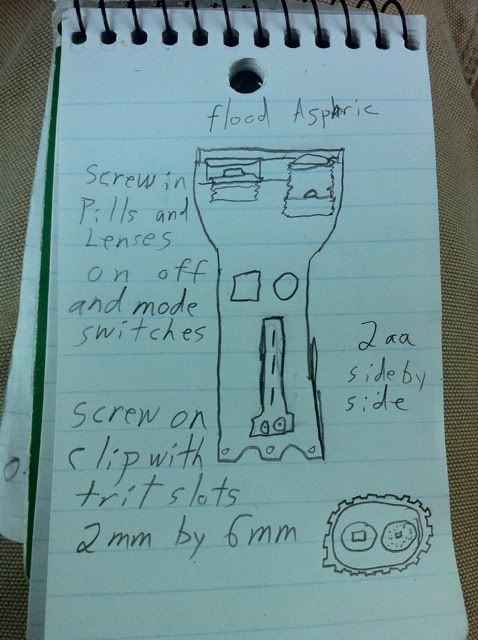 flood Aspheric
Screw in
Pills and
Lenses
on off
and mode
switches
2aa
side by
side
screw on
clip with
trit slots
2mm by 6mm